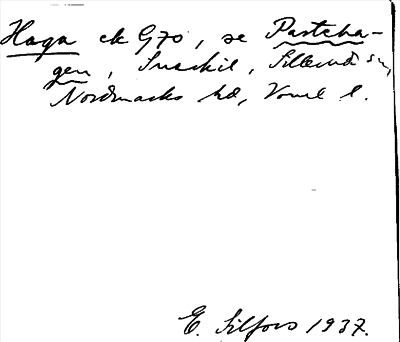 Haga ek G70, se Pastcha-
gen, Snarkil, Sillerud sn,
Nordmarks hd, Vrml l.
E. Silfors 1937.